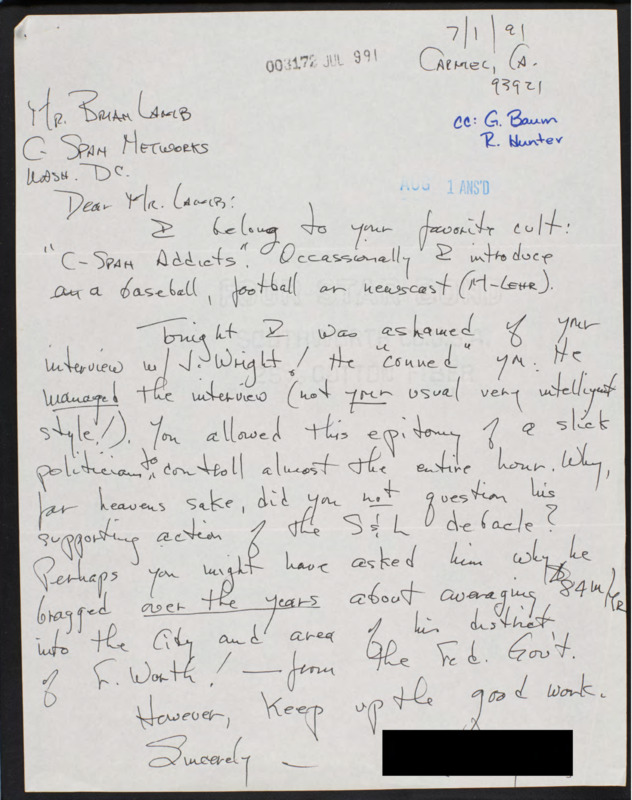 7/1/91
003172 JUL 991
CARMEL, CA.
93921
MR. BRIAN LAMB
cc: G. Baum
C SPAN NETWORKS
R. Hunter
WASH. DC.
AUG 1 ANS'D
Dear Mr. Lamb:
I belong to your favorite cult:
"C-SPAN Addicts". Occassionally I introduce
a baseball, football or newscast (M-LEHR).
Tonight I was ashamed of your
interview w/ J. Wright! He "conned" you. He
managed the interview (not your usual very intelligent
style!). You allowed this epitomy of a slick
politician to controll almost the entire hour. Why,
for heavens sake, did you not question his
supporting action of the S&L debacle?
Perhaps you might have asked him why he
bragged over the years about averaging $84M/YR
into the City and area of his district
of F. Worth! — from the Fed. Gov't.
However, keep up the good work.
Sincerely —